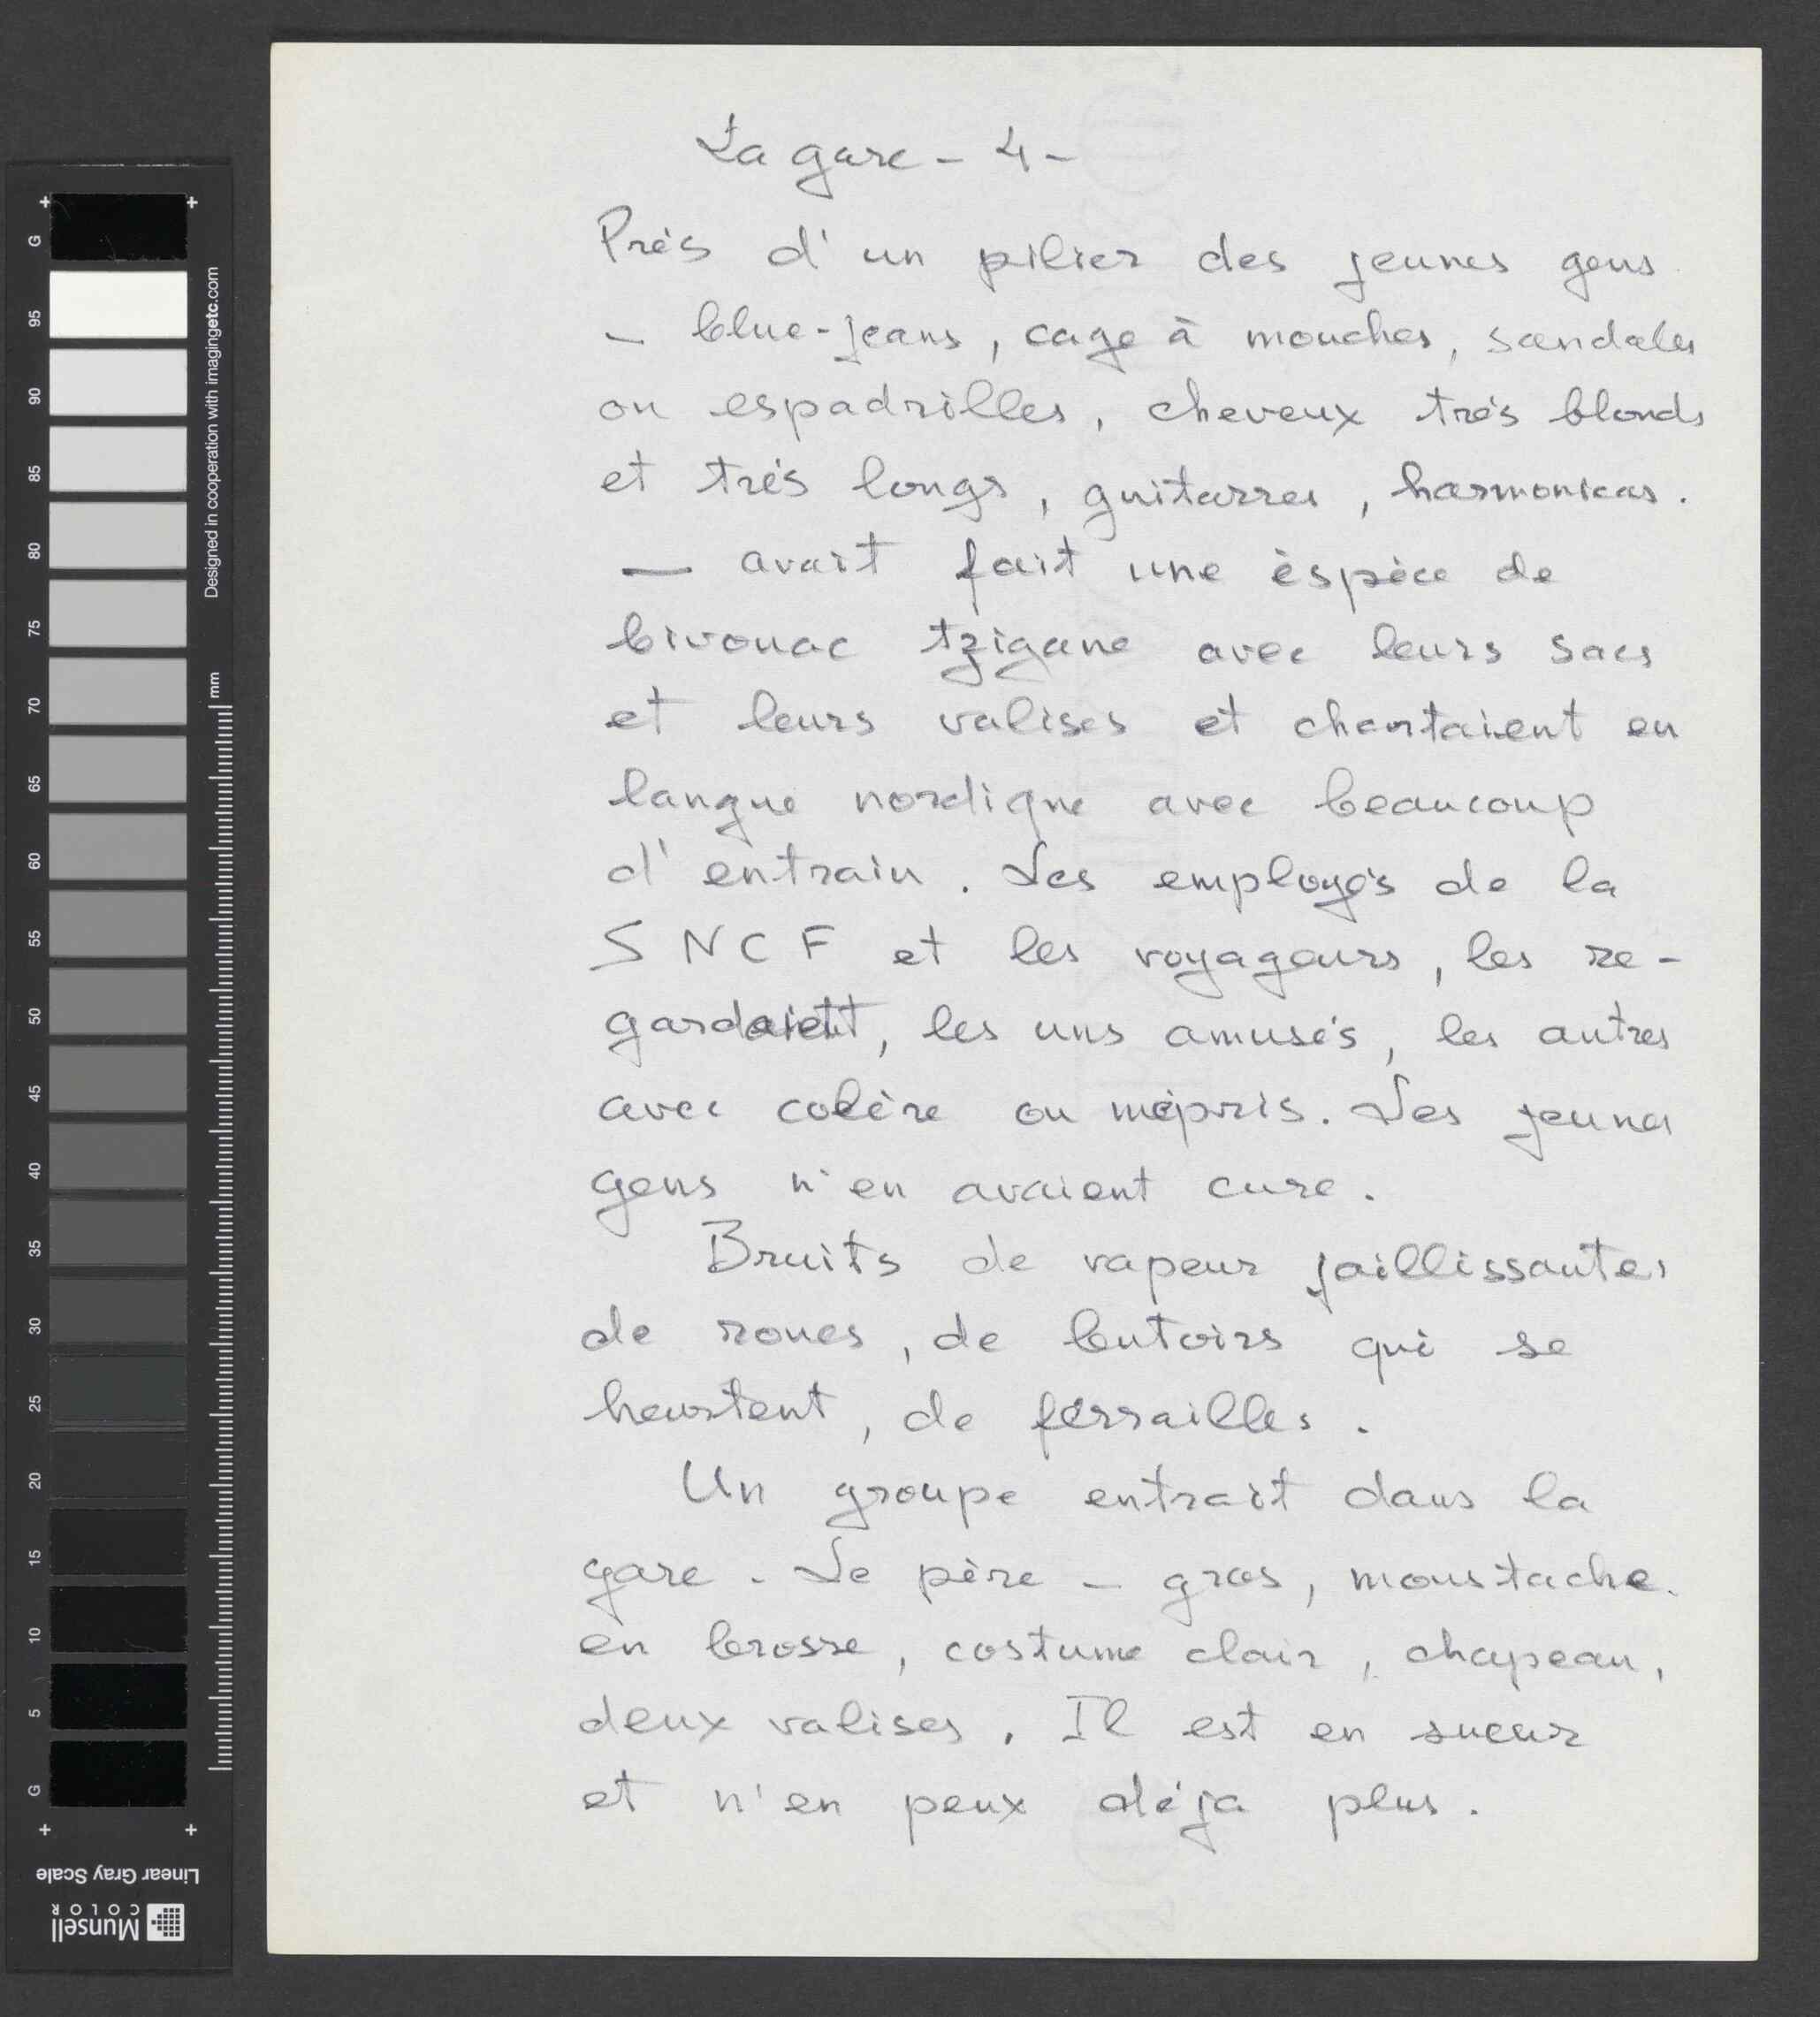 La gare - 4 -
Près d'un pilier des jeunes gens
- blue-jeans, cage à mouches, sandales
ou espadrilles, cheveux très blonds
et très longs, guitarres, harmonicas.
— avait fait une èspèce de
bivouac tzigane avec leurs sacs
et leurs valises et chantaient en
langue nordique avec beaucoup
d'entrain. Les employés de la
SNCF et les voyageurs, les re-
gardaient, les uns amusés, les autres
avec colère ou mépris. Les jeunes
gens n'en avaient cure.
Bruits de vapeur jaillissante,
de roues, de butoirs qui se
heurtent, de ferrailles.
Un groupe entrait dans la
gare. Le père - gros, moustache
en brosse, costume clair, chapeau,
deux valises. Il est en sueur
et n'en peux déja plus.
G
95
90
85
80
75
70
65
60
55
50
45
40
35
30
25
20
15
10
5
G
Designed in cooperation with imagingetc.com
mm
Linear Gray Scale
Munsell
COLOR